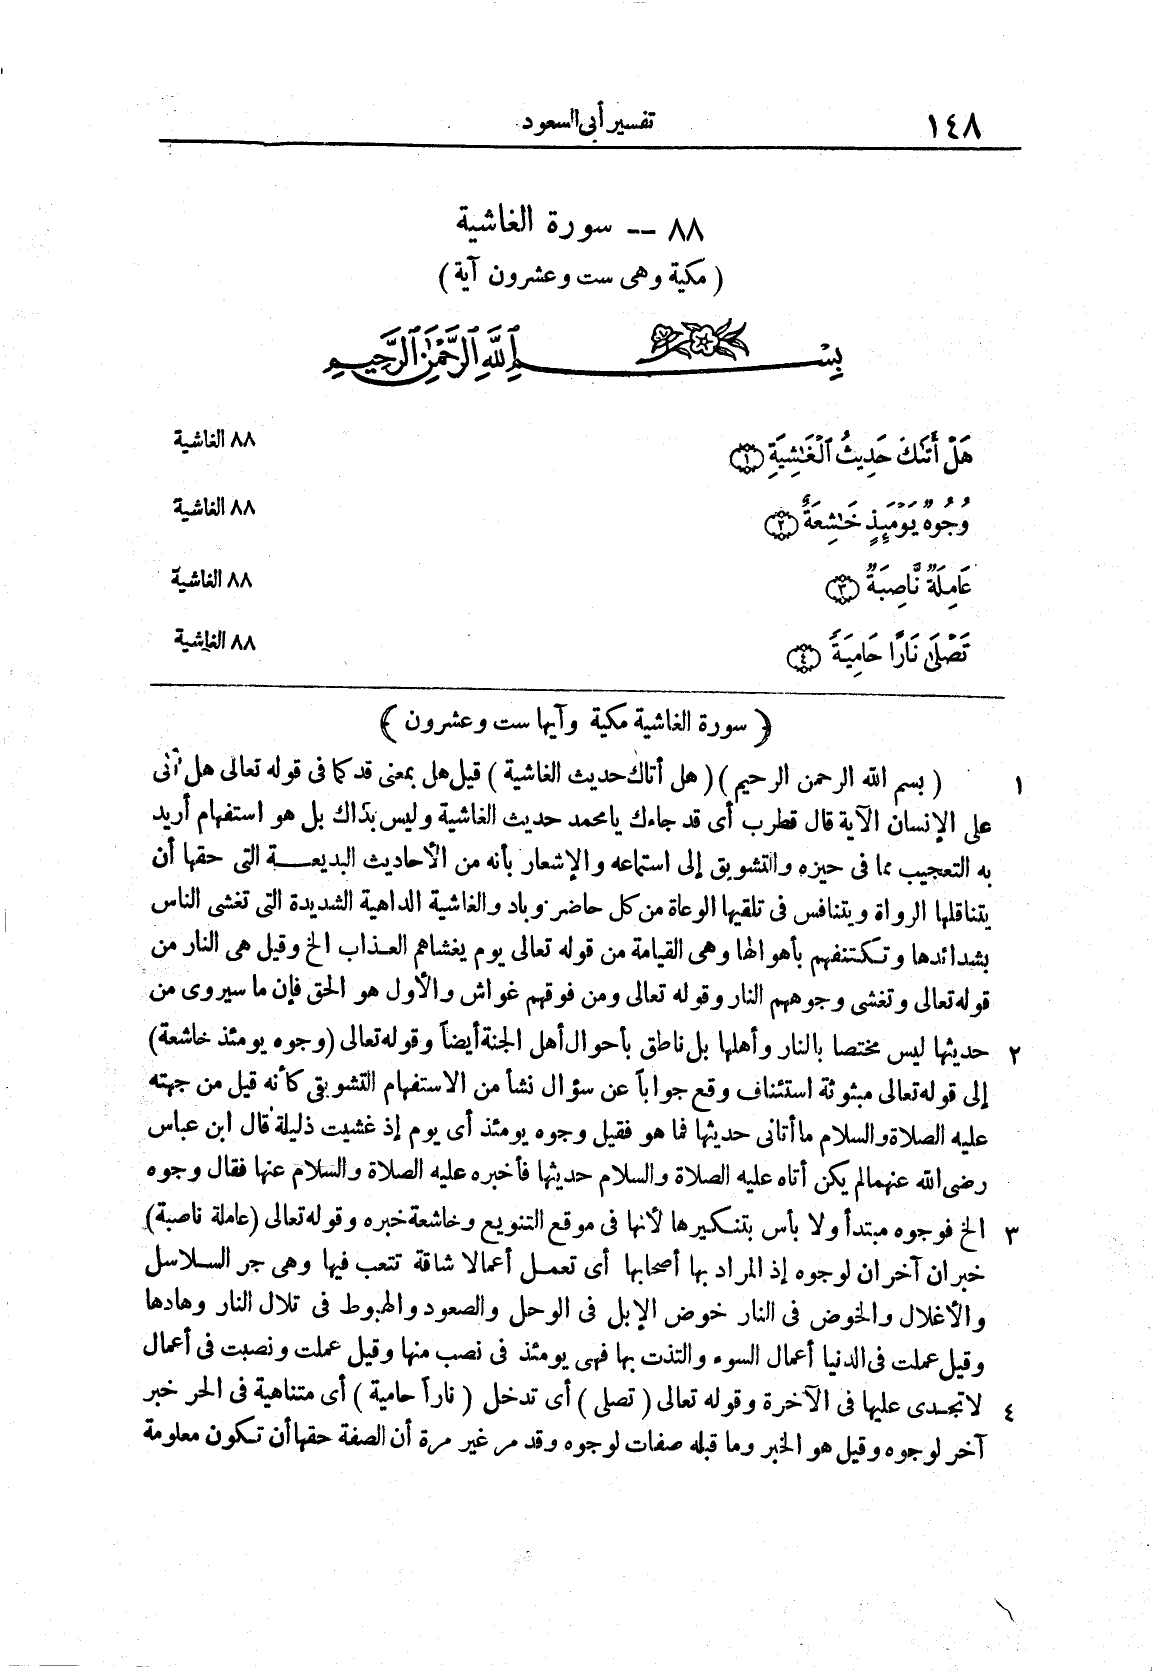 ١٤٨ تفسير أبى السعود
٨٨ -- سورة الغاشية
( مكية وهى ست وعشرون آية )
بِسْمِ ٱللَّهِ ٱلرَّحْمَٰنِ ٱلرَّحِيمِ
هَلْ أَتَىٰكَ حَدِيثُ ٱلْغَٰشِيَةِ ١ ٨٨ الغاشية
وُجُوهٌ يَوْمَئِذٍ خَٰشِعَةٌ ٢ ٨٨ الغاشية
عَامِلَةٌ نَّاصِبَةٌ ٣ ٨٨ الغاشية
تَصْلَىٰ نَارًا حَامِيَةً ٤ ٨٨ الغاشية
﴿ سورة الغاشية مكية وآيها ست وعشرون ﴾
١ ( بسم الله الرحمن الرحيم ) ( هل أتاك حديث الغاشية ) قيل هل بمعنى قد كما فى قوله تعالى هل أتى
على الإنسان الآية قال قطرب أى قد جاءك يا محمد حديث الغاشية وليس بذاك بل هو استفهام أريد
به التعجيب مما فى حيزه والتشويق إلى استماعه والإشعار بأنه من الأحاديث البديعة التى حقها أن
يتناقلها الرواة ويتنافس فى تلقيها الوعاة من كل حاضر وباد والغاشية الداهية الشديدة التى تغشى الناس
بشدائدها وتكتنفهم بأهوالها وهى القيامة من قوله تعالى يوم يغشاهم العذاب الخ وقيل هى النار من
قوله تعالى وتغشى وجوههم النار وقوله تعالى ومن فوقهم غواش والأول هو الحق فإن ما سيروى من
٢ حديثها ليس مختصا بالنار وأهلها بل ناطق بأحوال أهل الجنة أيضاً وقوله تعالى (وجوه يومئذ خاشعة)
إلى قوله تعالى مبثوثة استئناف وقع جواباً عن سؤال نشأ من الاستفهام التشويقى كأنه قيل من جهته
عليه الصلاة والسلام ما أتانى حديثها فما هو فقيل وجوه يومئذ أى يوم إذ غشيت ذليلة قال ابن عباس
رضى الله عنهما لم يكن أتاه عليه الصلاة والسلام حديثها فأخبره عليه الصلاة والسلام عنها فقال وجوه
٣ الخ فوجوه مبتدأ ولا بأس بتنكيرها لأنها فى موقع التنويع وخاشعة خبره وقوله تعالى (عاملة ناصبة)
خبران آخران لوجوه إذ المراد بها أصحابها أى تعمل أعمالا شاقة تتعب فيها وهى جر السلاسل
والأغلال والخوض فى النار خوض الإبل فى الوحل والصعود والهبوط فى تلال النار وهادها
وقيل عملت فى الدنيا أعمال السوء والتذت بها فهى يومئذ فى نصب منها وقيل عملت ونصبت فى أعمال
٤ لا تجدى عليها فى الآخرة وقوله تعالى ( تصلى ) أى تدخل ( ناراً حامية ) أى متناهية فى الحر خبر
آخر لوجوه وقيل هو الخبر وما قبله صفات لوجوه وقد مر غير مرة أن الصفة حقها أن تكون معلومة